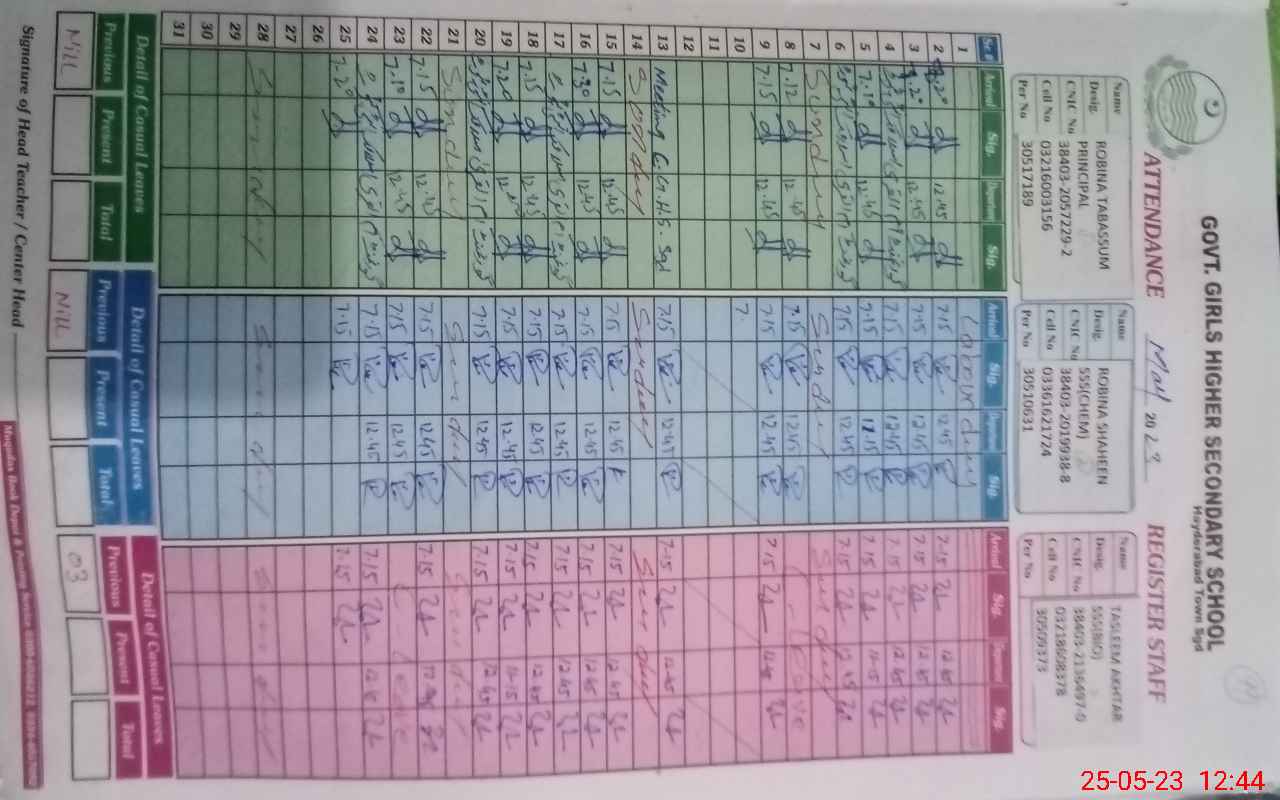 GOVT. GIRLS HIGHER SECONDARY SCHOOL
Hayderabad Town Sgd
ATTENDANCE May 2023 REGISTER STAFF
Name ROBINA TABASSUM
Desig. PRINCIPAL
CNIC No 38403-2057229-2
Cell No 03216003156
Per No 30517189
Name ROBINA SHAHEEN
Desig. SSS(CHEM)
CNIC No 38403-2019938-8
Cell No 03361621724
Per No 30510631
Name TASLEEM AKHTAR
Desig. SSS(BIO)
CNIC No 38403-2136497-0
Cell No 03218608378
Per No 30509373
Sr.# Arrival Sig. Departure Sig. Arrival Sig. Departure Sig. Arrival Sig. Departure Sig.
1 Labour day
2 7.20 12.45 7.15 12.45 7.15 12.45
3 7.20 12.45 7.15 12.45 7.15 12.45
4 7.15 12.45 7.15 12.45
5 7.10 12.45 7.15 12.15 7.15 11.15
6 7.15 12.45 7.15 12.45
7 Sunday Sunday Sunday
8 7.12 12.45 7.15 12.45 Leave
9 7.15 12.45 7.15 12.45 7.15 12.45
10 7.
11
12
13 Meeting G.G.H.S. Sgd 7.15 12.45 7.15 12.45
14 Sunday Sunday Sunday
15 7.15 12.45 7.15 12.45 7.15 12.45
16 7.20 12.45 7.15 12.45 7.15 12.45
17 7.15 12.45 7.15 12.45
18 7.15 12.45 7.15 12.45 7.15 12.45
19 7.20 12.45 7.15 12.45 7.15 11.15
20 7.15 12.45 7.15 12.45
21 Sunday Sunday Sunday
22 7.15 12.45 7.15 12.45 7.15
23 7.10 12.45 7.15 12.45 Leave
24 7.15 12.45 7.15
25 7.20 7.15 7.15
26
27
28 Sunday Sunday Sunday
29
30
31
Detail of Casual Leaves Detail of Casual Leaves Detail of Casual Leaves
Previous Present Total Previous Present Total Previous Present Total
Nill Nill 03
Signature of Head Teacher / Center Head
Muqadas Book Depot & Printing Service
25-05-23 12:44